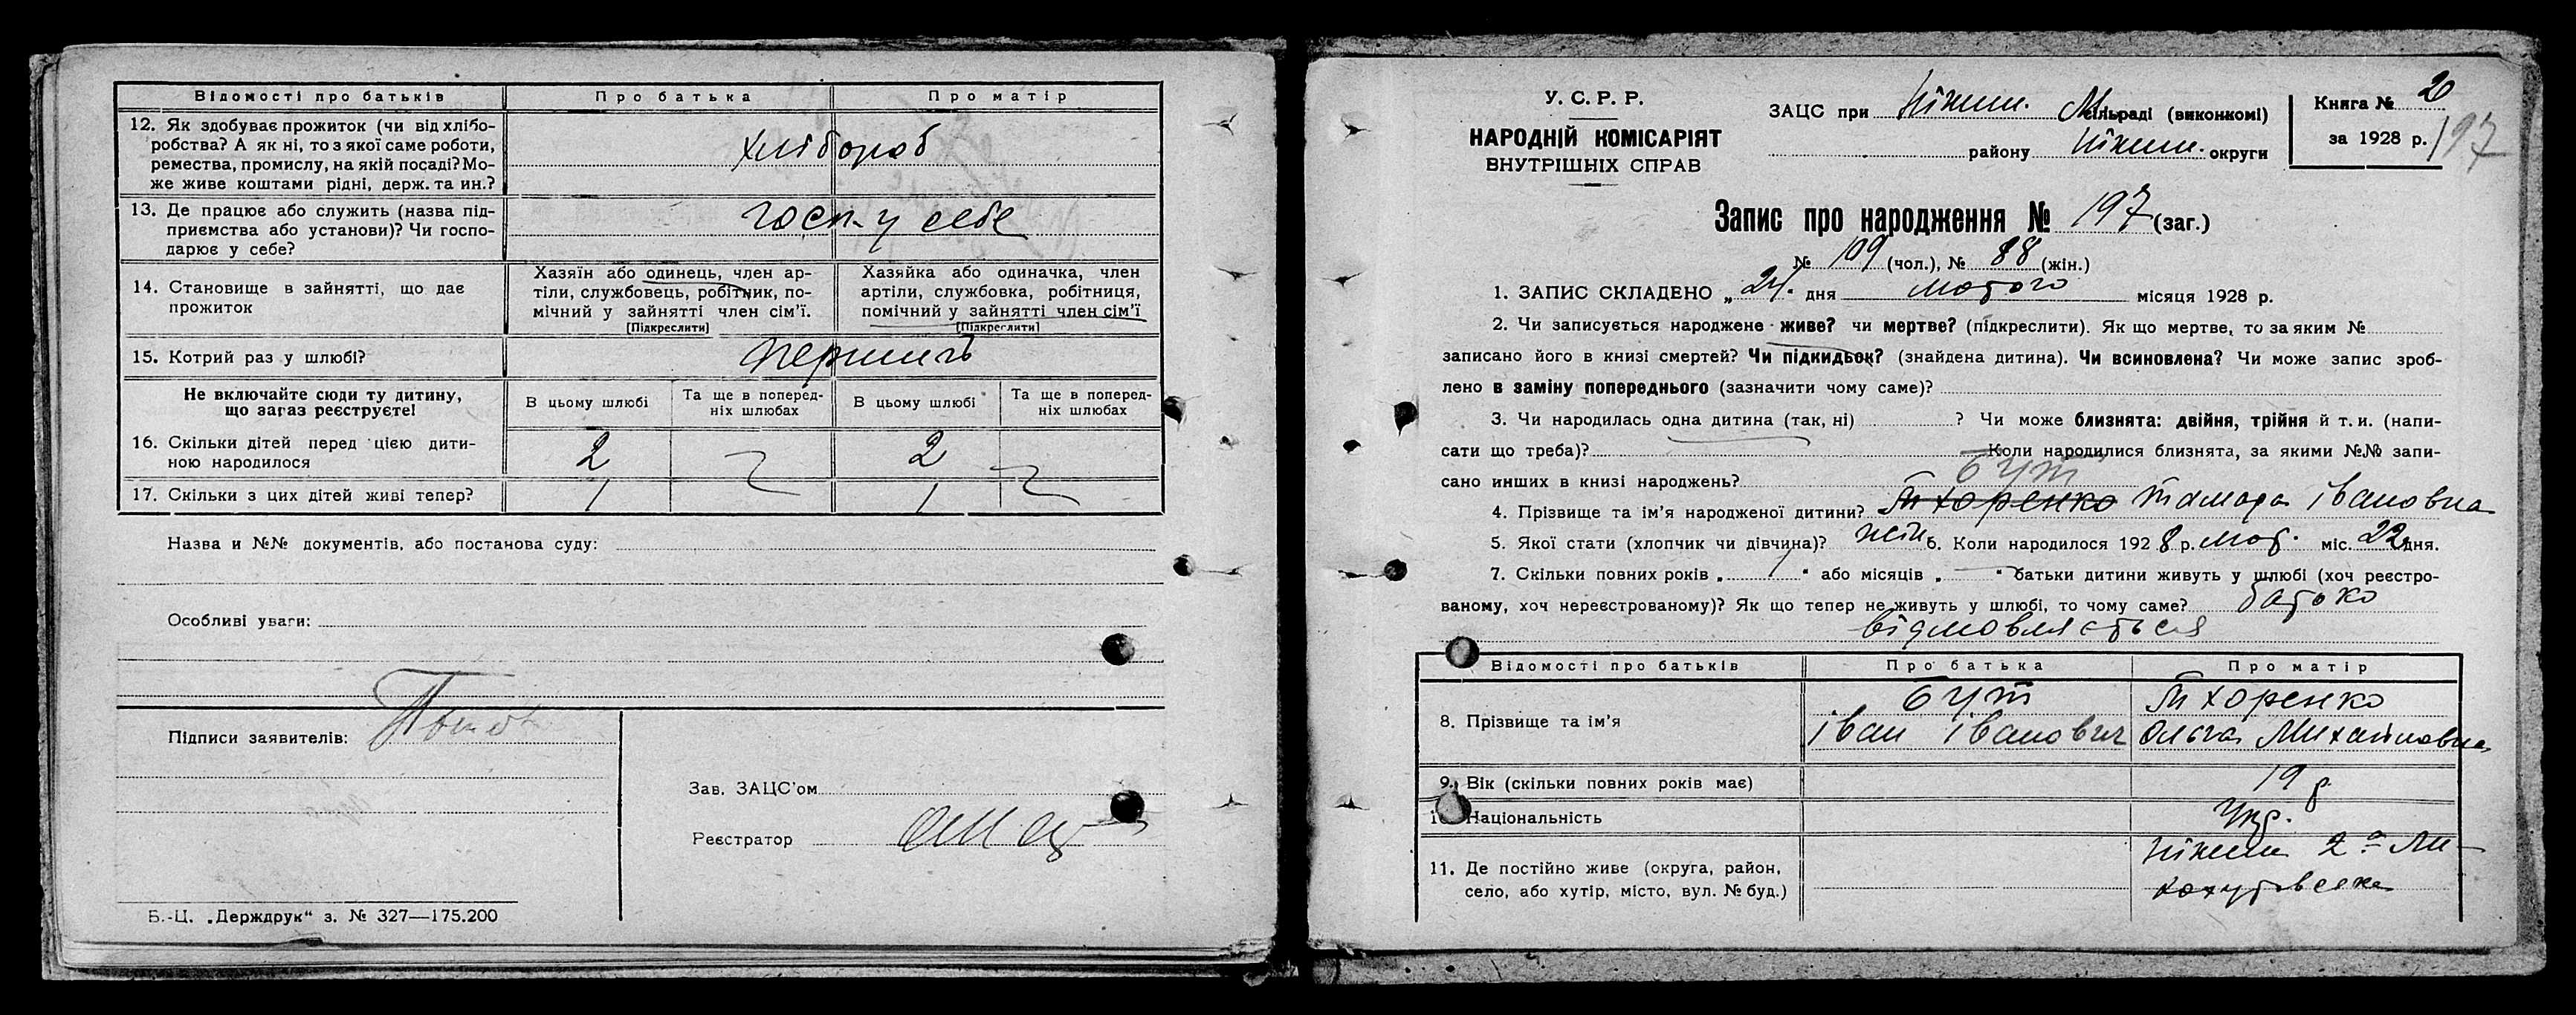 Відомості про батьків Про батька Про матір
12. Як здобуває прожиток (чи від хлібо-
робства? А як ні, то з якої саме роботи,
ремества, промислу, на якій посаді? Мо-
же живе коштами рідні, держ. та ин.?
хлібороб
13. Де працює або служить (назва під-
приємства або установи)? Чи госпо-
дарює у себе?
госп. у себе
14. Становище в зайнятті, що дає
прожиток
Хазяїн або одинець, член ар-
тіли, службовець, робітник, по-
мічний у зайнятті член сім'ї.
(Підкреслити)
Хазяйка або одиначка, член
артіли, службовка, робітниця,
помічний у зайнятті член сім'ї
(Підкреслити)
15. Котрий раз у шлюбі?
Не включайте сюди ту дитину,
що загаз реєструєте!
В цьому шлюбі
Та ще в поперед-
ніх шлюбах
В цьому шлюбі
Та ще в поперед-
ніх шлюбах
16. Скільки дітей перед цією дити-
ною народилося
2 2
17. Скільки з цих дітей живі тепер? 1 1
Назва и №№ документів, або постанова суду:
Особливі уваги:
Підписи заявителів:
Зав. ЗАЦС'ом
Реєстратор
Б.-Ц. „Держдрук" з. № 327—175.200
У. С. Р. Р.
НАРОДНІЙ КОМІСАРІЯТ
ВНУТРІШНІХ СПРАВ
ЗАЦС при Ніжин. М сільраді (виконкомі)
району Ніжин. округи
Книга № 2
за 1928 р.
197
Запис про народження № 197 (заг.)
№ 109 (чол.), № 88 (жін.)
1. ЗАПИС СКЛАДЕНО „ 24. дня лютого місяця 1928 р.
2. Чи записується народжене живе? чи мертве? (підкреслити). Як що мертве, то за яким №
записано його в книзі смертей? Чи підкидьок? (знайдена дитина). Чи всиновлена? Чи може запис зроб-
лено в заміну попереднього (зазначити чому саме)?
3. Чи народилась одна дитина (так, ні) ? Чи може близнята: двійня, трійня й т. и. (напи-
сати що треба)? Коли народилися близнята, за якими №№ запи-
сано инших в книзі народжень?
Бут
4. Прізвище та ім'я народженої дитини? Тхоренко Тамара Івановна
5. Якої стати (хлопчик чи дівчина)? жін. 6. Коли народилося 1928 р. лют. міс. 22 дня.
7. Скільки повних років „ " або місяців „ " батьки дитини живуть у шлюбі (хоч реєстро-
ваному, хоч нереєстрованому)? Як що тепер не живуть у шлюбі, то чому саме? батько
відмовляється
Відомості про батьків Про батька Про матір
8. Прізвище та ім'я
Бут
Іван Іванович
Тхоренко
Ольга Михайловна
9. Вік (скільки повних років має) 19 р.
10. Національність Укр.
11. Де постійно живе (округа, район,
село, або хутір, місто, вул. № буд.)
Ніжин 2а